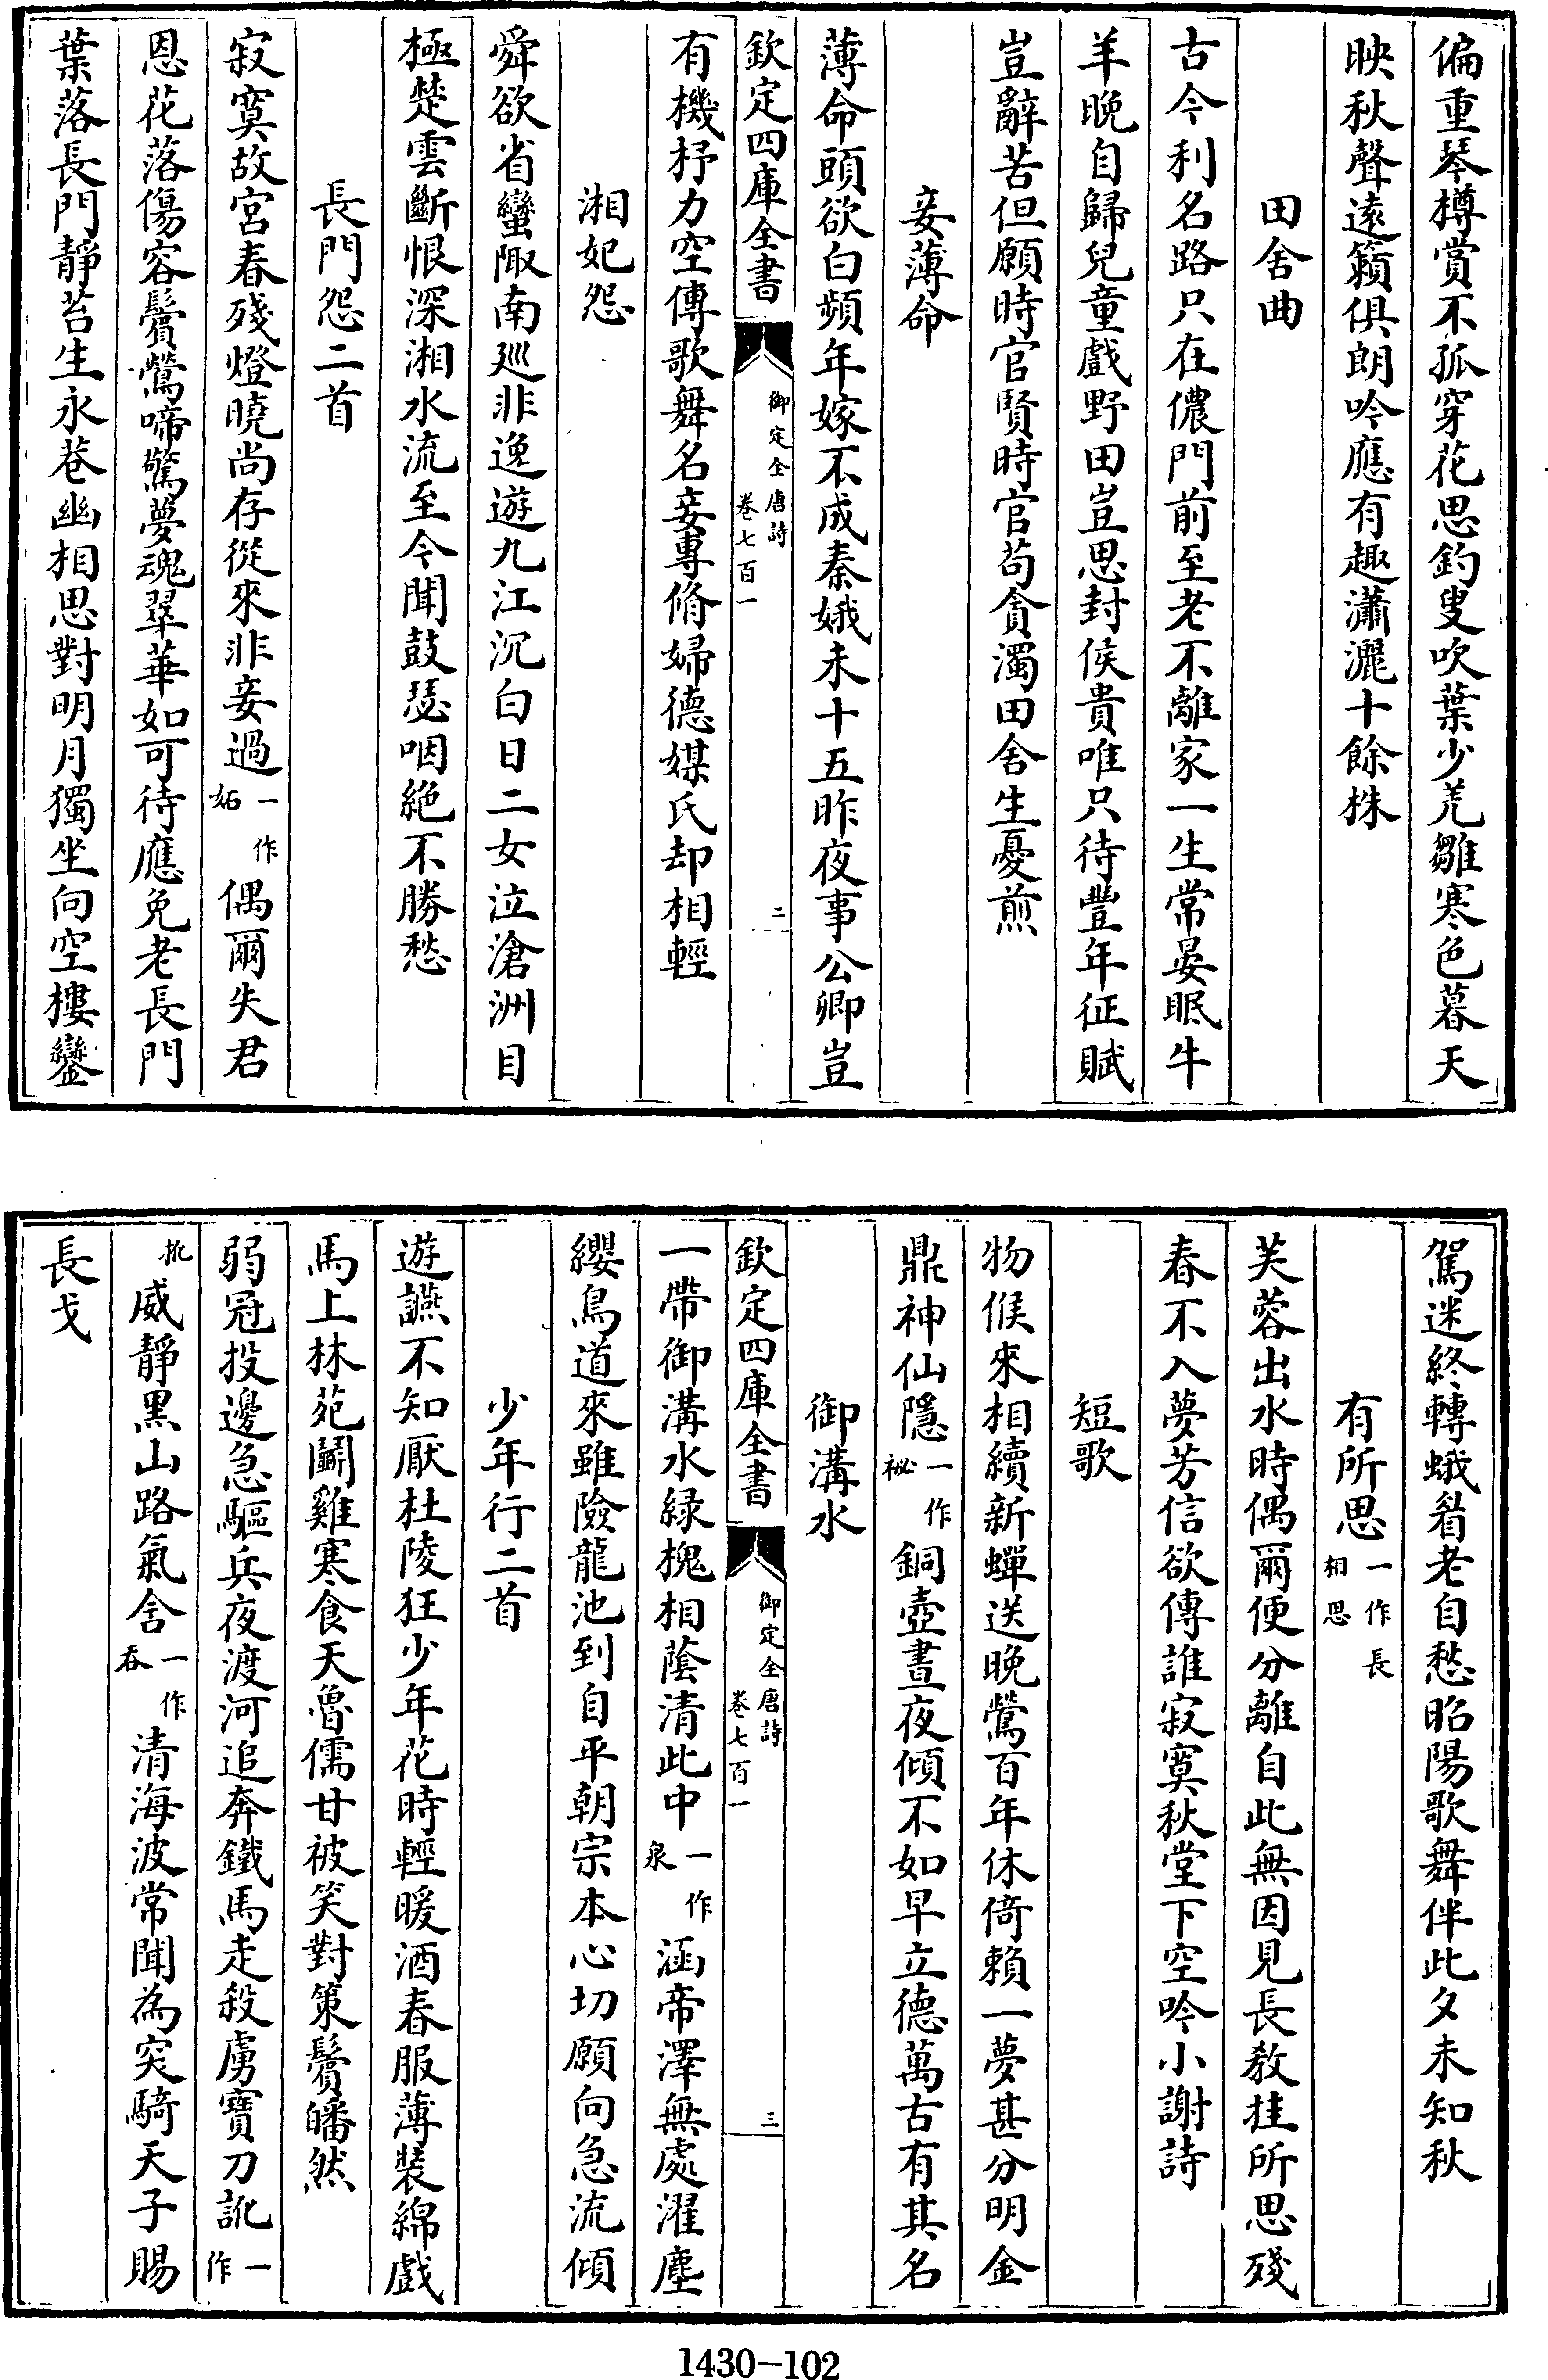 偏重琴樽賞不孤穿花思釣叟吹葉少羌雛寒色暮天
映秋聲遠籟俱朗吟應有趣瀟灑十餘株
田舍曲
古今利名路只在儂門前至老不離家一生常晏眠牛
羊晚自歸兒童戲野田豈思封侯貴唯只待豐年征賦
豈辭苦但願時官賢時官苟貪濁田舍生憂煎
妾薄命
薄命頭欲白頻年嫁不成秦娥未十五昨夜事公卿豈
欽定四庫全書
御定全唐詩
卷七百一
二
有機杼力空傳歌舞名妾專脩婦德媒氏却相輕
湘妃怨
舜欲省蠻陬南廵非逸遊九江沉白日二女泣滄洲目
極楚雲斷恨深湘水流至今聞鼓瑟咽絶不勝愁
長門怨二首
寂寞故宮春殘燈曉尚存從來非妾過一作妬偶爾失君
恩花落傷容鬢鶯啼驚夢魂翠華如可待應免老長門
葉落長門靜苔生永巷幽相思對明月獨坐向空樓鑾
駕迷終轉蛾眉老自愁昭陽歌舞伴此夕未知秋
有所思一作長相思
芙蓉出水時偶爾便分離自此無因見長教挂所思殘
春不入夢芳信欲傳誰寂寞秋堂下空吟小謝詩
短歌
物候來相續新蟬送晚鶯百年休倚賴一夢甚分明金
鼎神仙隱一作祕銅壺晝夜傾不如早立德萬古有其名
御溝水
欽定四庫全書
御定全唐詩
卷七百一
三
一帶御溝水緑槐相蔭清此中一作泉涵帝澤無處濯塵
纓鳥道來雖險龍池到自平朝宗本心切願向急流傾
少年行二首
遊讌不知厭杜陵狂少年花時輕暖酒春服薄裝綿戲
馬上林苑鬬雞寒食天魯儒甘被笑對策鬢皤然
弱冠投邊急驅兵夜渡河追奔鐵馬走殺虜寶刀訛一作
㧝威靜黒山路氣含一作吞清海波常聞為突騎天子賜
長戈
1430—102